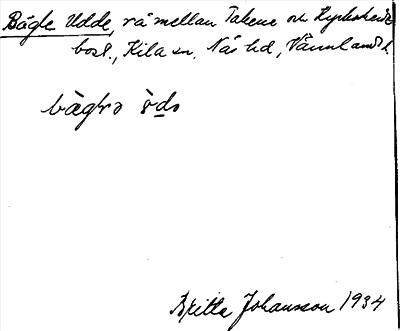 Bågle Udde, rå mellan Takene och Kyrkeheds
bost., Kila sn. Näs hd, Värmlands l.
Britta Johansson 1934